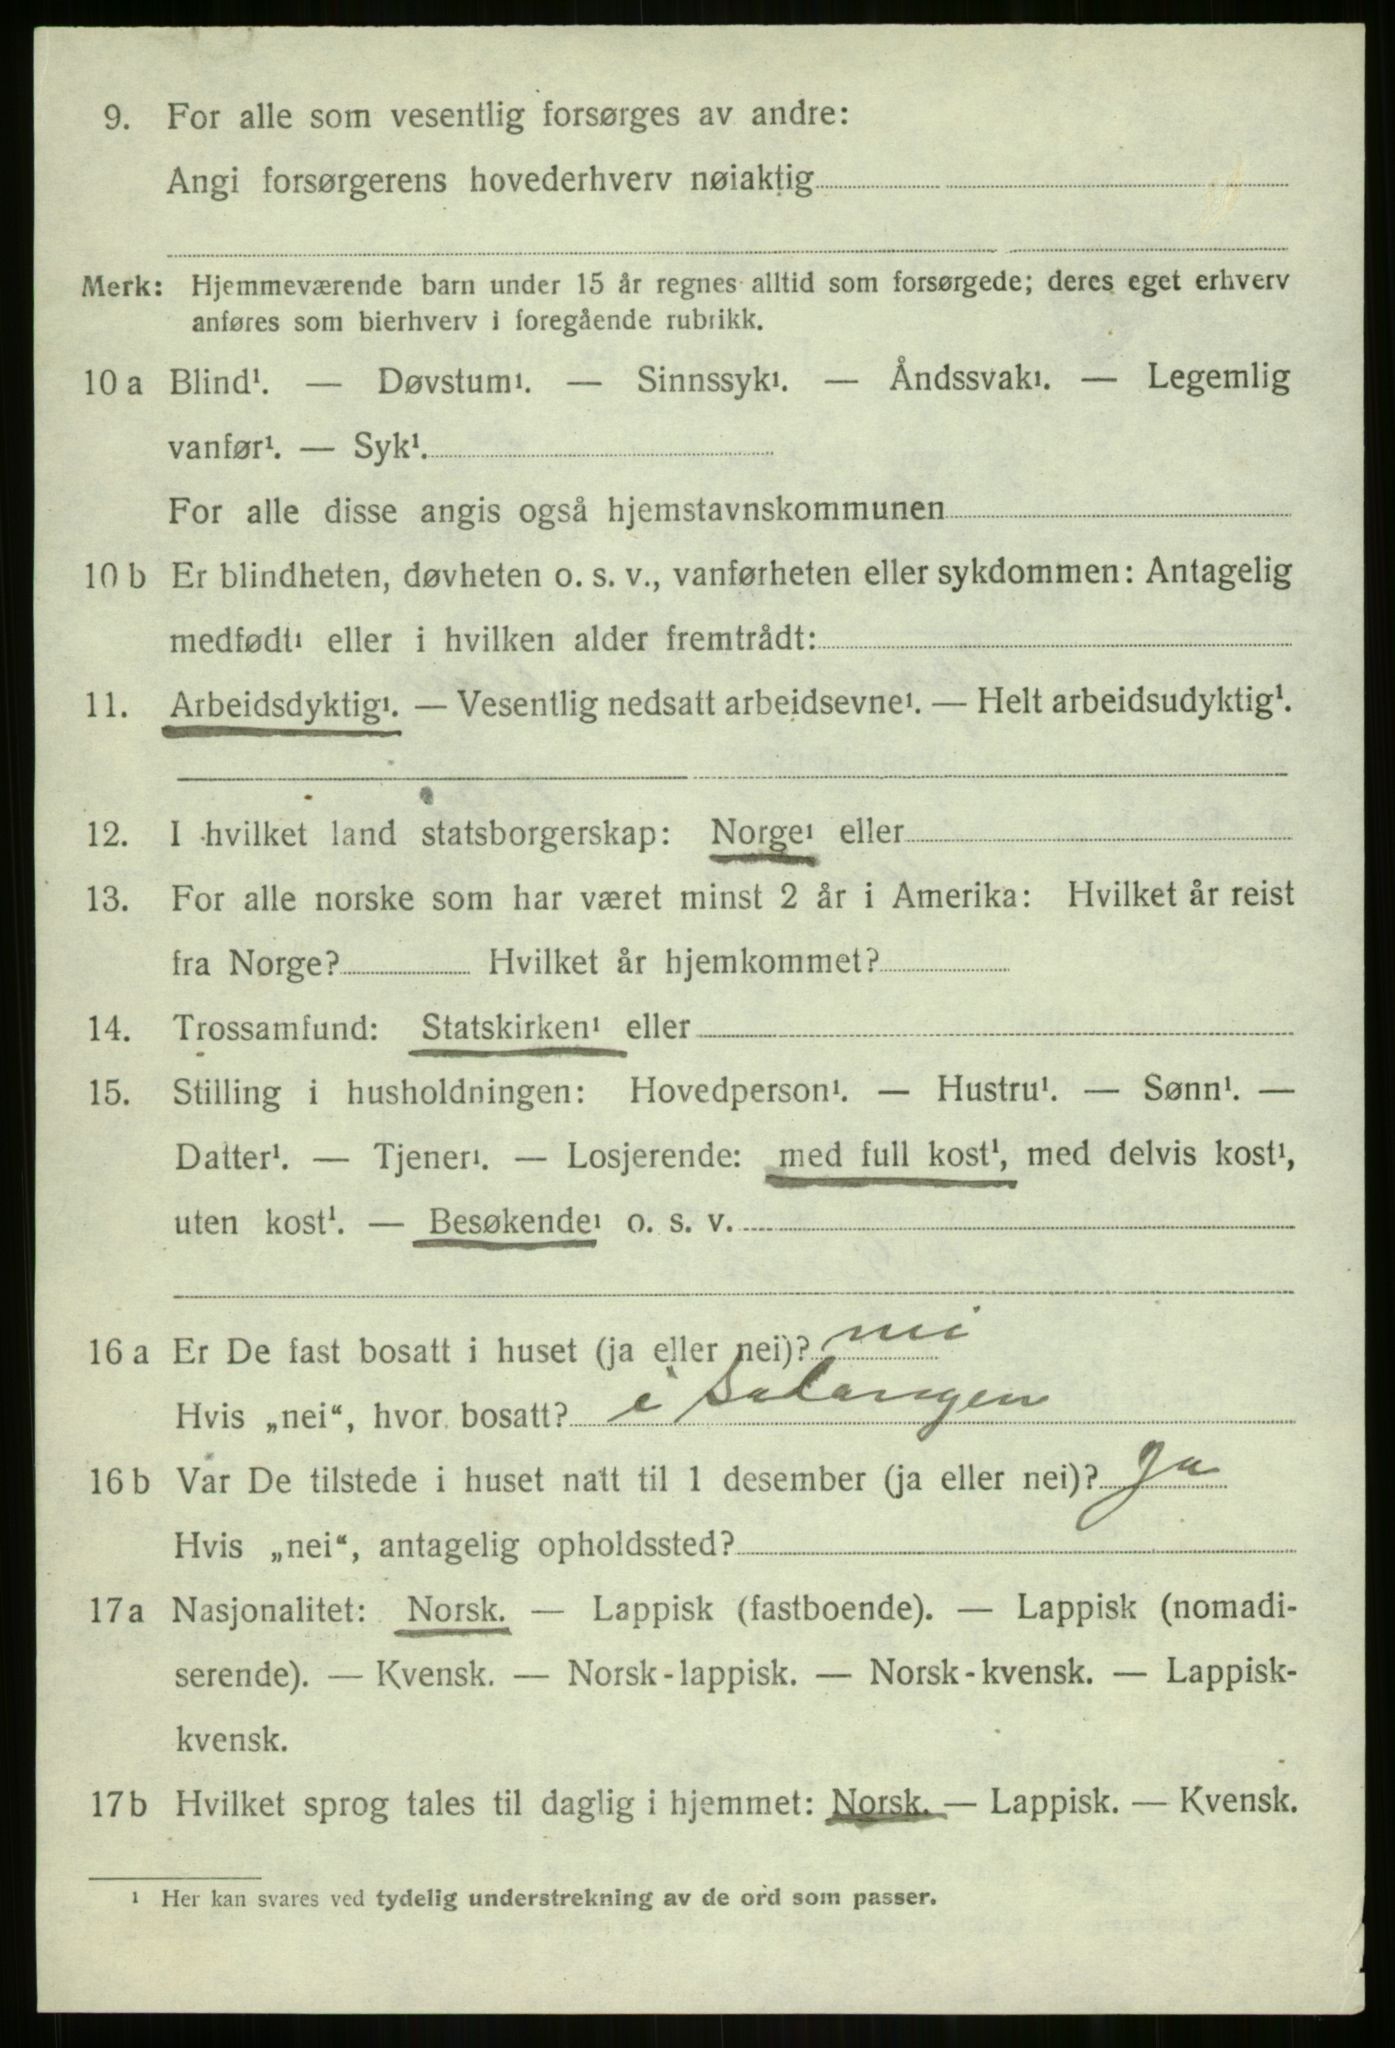 9. For alle som vesentlig forsørges av andre:
Angi forsørgerens hovederhverv nøiaktig
Merk: Hjemmeværende barn under 15 år regnes alltid som forsørgede; deres eget erhverv
anføres som bierhverv i foregående rubrikk.
10 a Blind¹. — Døvstum¹. — Sinnssyk¹. — Åndssvak¹. — Legemlig
vanfør¹. — Syk¹.
For alle disse angis også hjemstavnskommunen
10 b Er blindheten, døvheten o. s. v., vanførheten eller sykdommen: Antagelig
medfødt¹ eller i hvilken alder fremtrådt:
11. Arbeidsdyktig¹. — Vesentlig nedsatt arbeidsevne¹. — Helt arbeidsudyktig¹.
12. I hvilket land statsborgerskap: Norge¹ eller
13. For alle norske som har været minst 2 år i Amerika: Hvilket år reist
fra Norge? Hvilket år hjemkommet?
14. Trossamfund: Statskirken¹ eller
15. Stilling i husholdningen: Hovedperson¹. — Hustru¹. — Sønn¹. —
Datter¹. — Tjener¹. — Losjerende: med full kost¹, med delvis kost¹,
uten kost¹. — Besøkende¹ o. s. v.
16 a Er De fast bosatt i huset (ja eller nei)? nei
Hvis „nei“, hvor bosatt? i Salangen
16 b Var De tilstede i huset natt til 1 desember (ja eller nei)? Ja
Hvis „nei“, antagelig opholdssted?
17 a Nasjonalitet: Norsk. — Lappisk (fastboende). — Lappisk (nomadi-
serende). — Kvensk. — Norsk-lappisk. — Norsk-kvensk. — Lappisk-
kvensk.
17 b Hvilket sprog tales til daglig i hjemmet: Norsk. — Lappisk. — Kvensk.
¹ Her kan svares ved tydelig understrekning av de ord som passer.